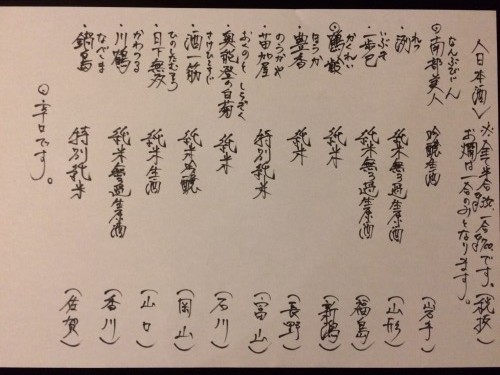 〈日本酒〉 ※全半合 一合 です。(税抜)
お燗は一合のみとなります。
なんぶびじん
⊙南部美人 吟醸生酒 (岩手)
れつ
・洌 純米無ろ過生原酒 (山形)
いぶき
・一歩己 純米無ろ過生原酒 (福島)
かくれい
⊙鶴齢 純米 (新潟)
ほうか
・豊香 純米 (長野)
のうかや
・苗加屋 特別純米 (富山)
おくのと しらぎく
・奥能登の白菊 純米 (石川)
さけひとすじ
・酒一筋 純米吟醸 (岡山)
ひのしたむそう
・日下無双 純米生酒 (山口)
かわつる
・川鶴 純米無ろ過生原酒 (香川)
なべしま
・鍋島 特別純米 (佐賀)
⊙辛口です。